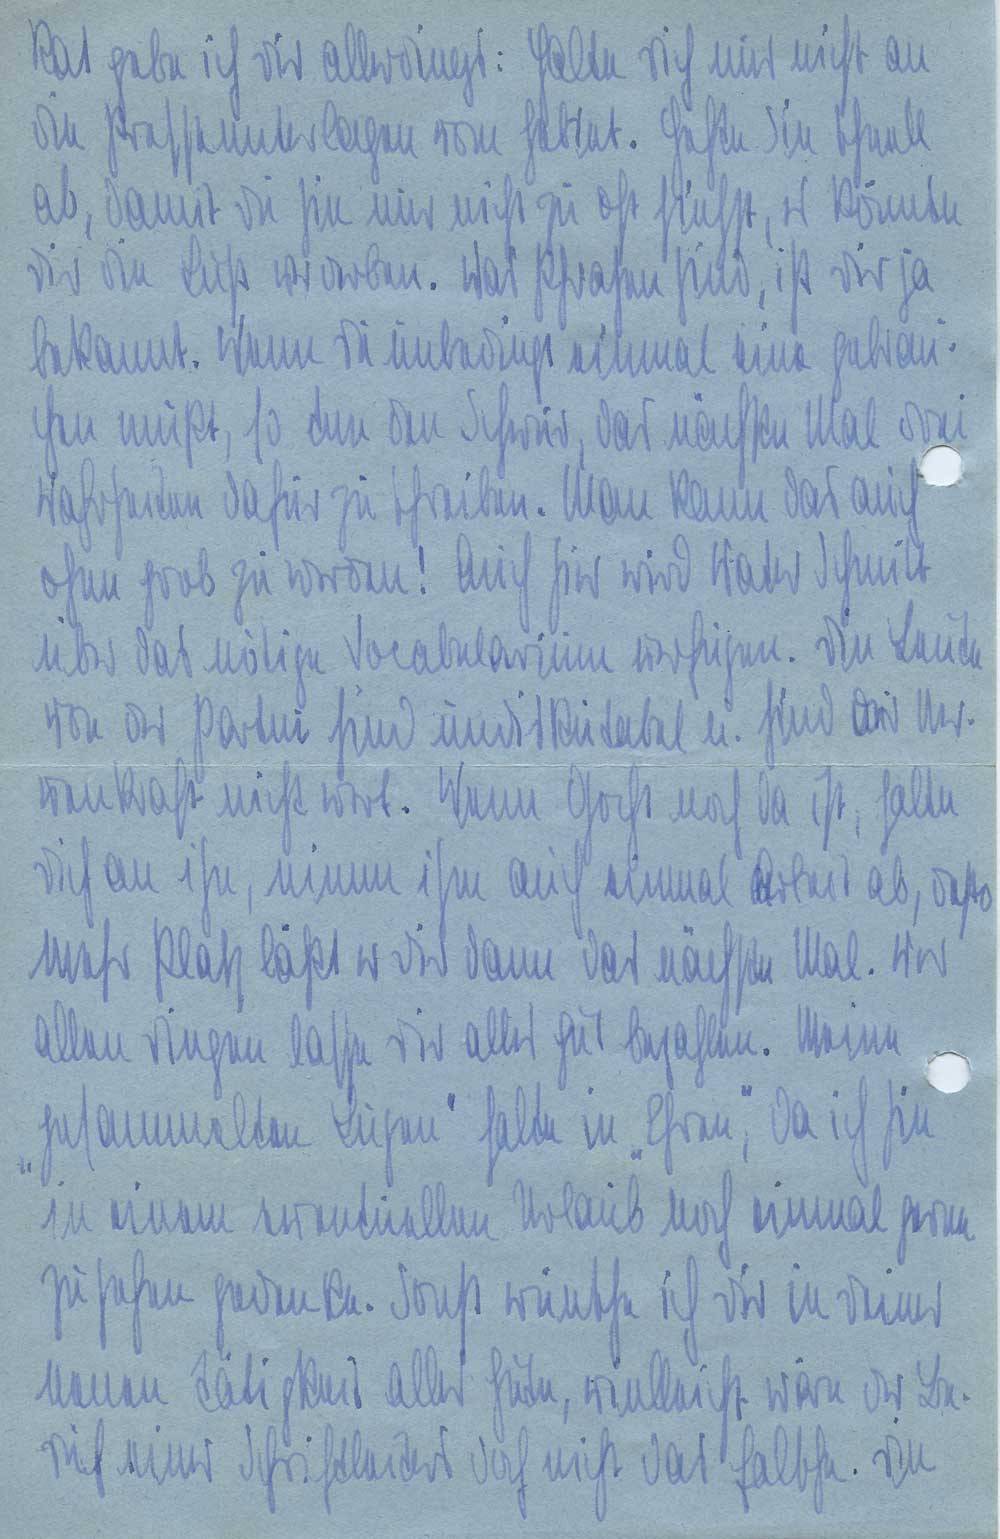 Rat gebe ich dir allerdings: Halte dich nur nicht an
die Presseunterlagen vom Gebiet. Hefte sie schnell
ab, damit du sie nur nicht zu oft siehst, es könnte
dir die Lust verderben. Was Phrasen sind, ist dir ja
bekannt. Wenn du unbedingt einmal eine gebrau-
chen mußt, so tue den Schwur, das nächste Mal drei
Wahrheiten dafür zu schreiben. Man kann das auch
ohne grob zu werden! Auch hier wird Vater Schmitt
über das nötige Vocabularium verfügen. Die Leute
von der Partei sind undiskutabel u. sind der Ner-
venkraft nicht wert. Wenn noch da ist, halte
dich an ihn, nimm ihm auch einmal Arbeit ab, desto
mehr Platz läßt er dir dann das nächste Mal. Vor
allen Dingen lasse dir alles gut bezahlen. Meine
„gesammelten Lügen" halte in „Ehren", da ich sie
in einem eventuellen Urlaub noch einmal gerne
zu sehen gedenke. Sonst wünsche ich dir in deiner
neuen Tätigkeit alles Gute, vielleicht wäre der Be-
ruf eines Schriftleiters doch nicht das falsche. Die